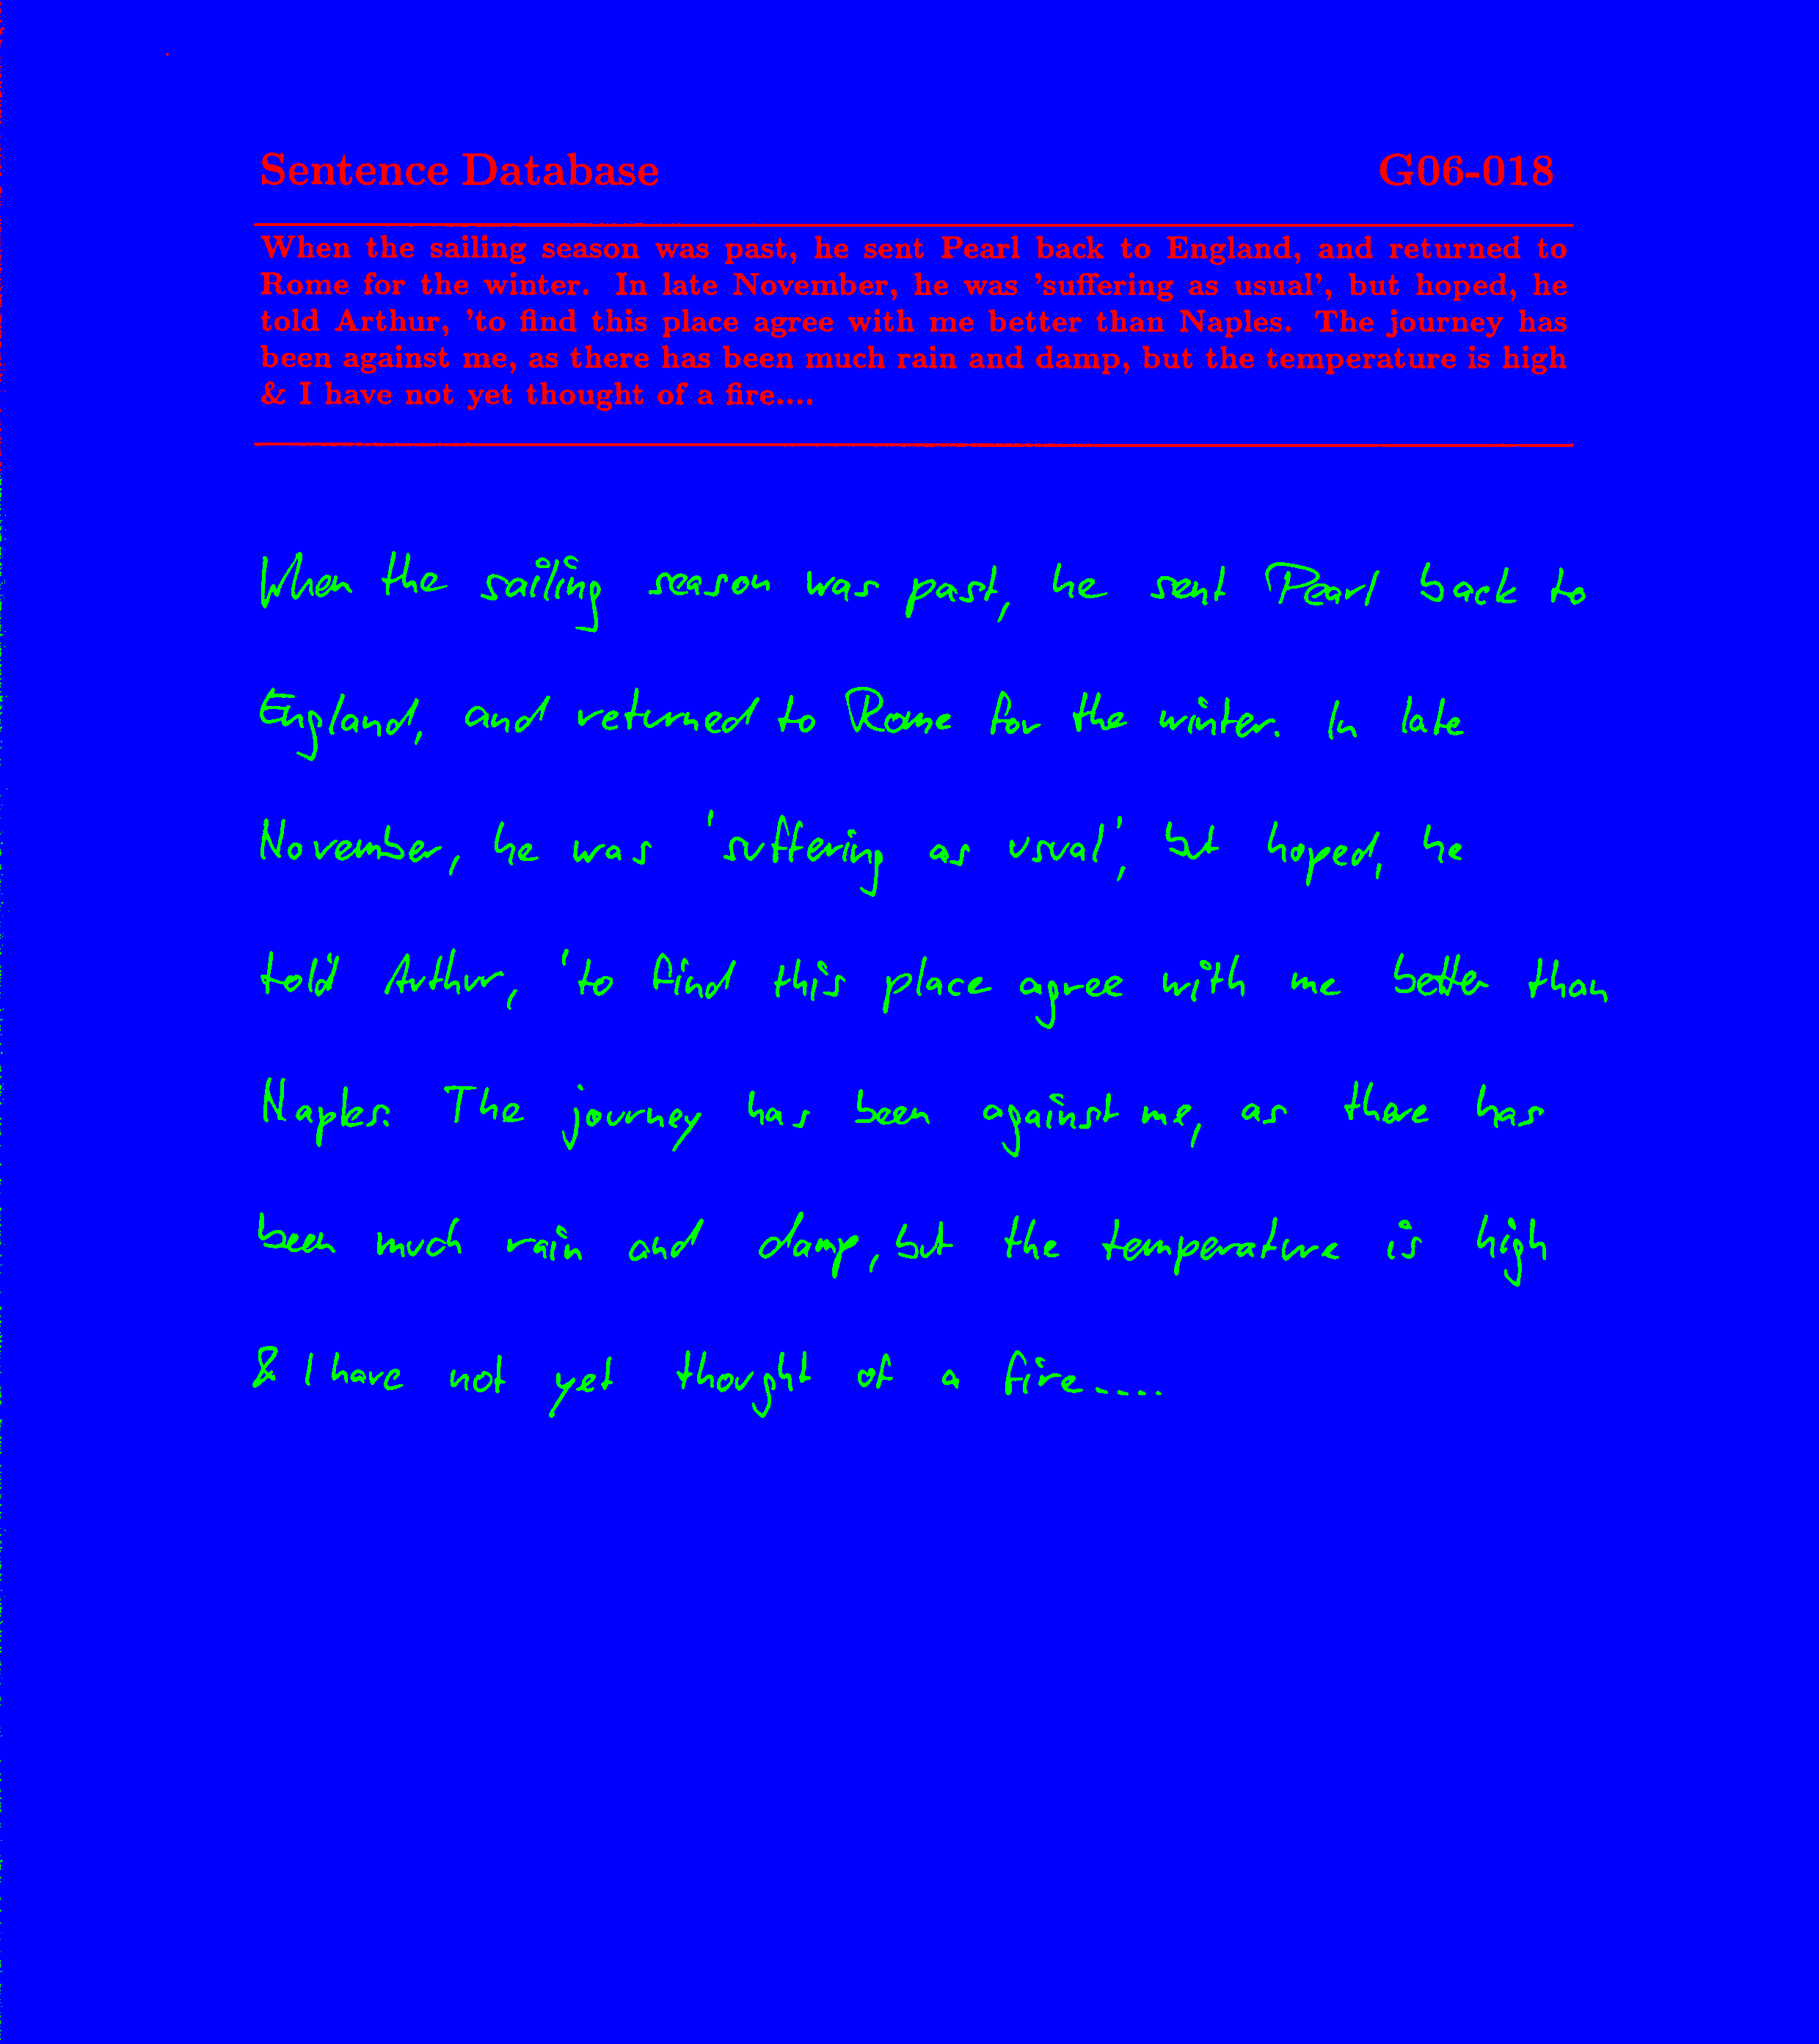 Sentence Database G06-018
When the sailing season was past, he sent Pearl back to England, and returned to
Rome for the winter. In late November, he was 'suffering as usual', but hoped, he
told Arthur, 'to find this place agree with me better than Naples. The journey has
been against me, as there has been much rain and damp, but the temperature is high
& I have not yet thought of a fire....
When the sailing season was past, he sent Pearl back to
England, and returned to Rome for the winter. In late
November, he was 'suffering as usual', but hoped, he
told Arthur, 'to find this place agree with me better than
Naples. The journey has been against me, as there has
been much rain and damp, but the temperature is high
& I have not yet thought of a fire....